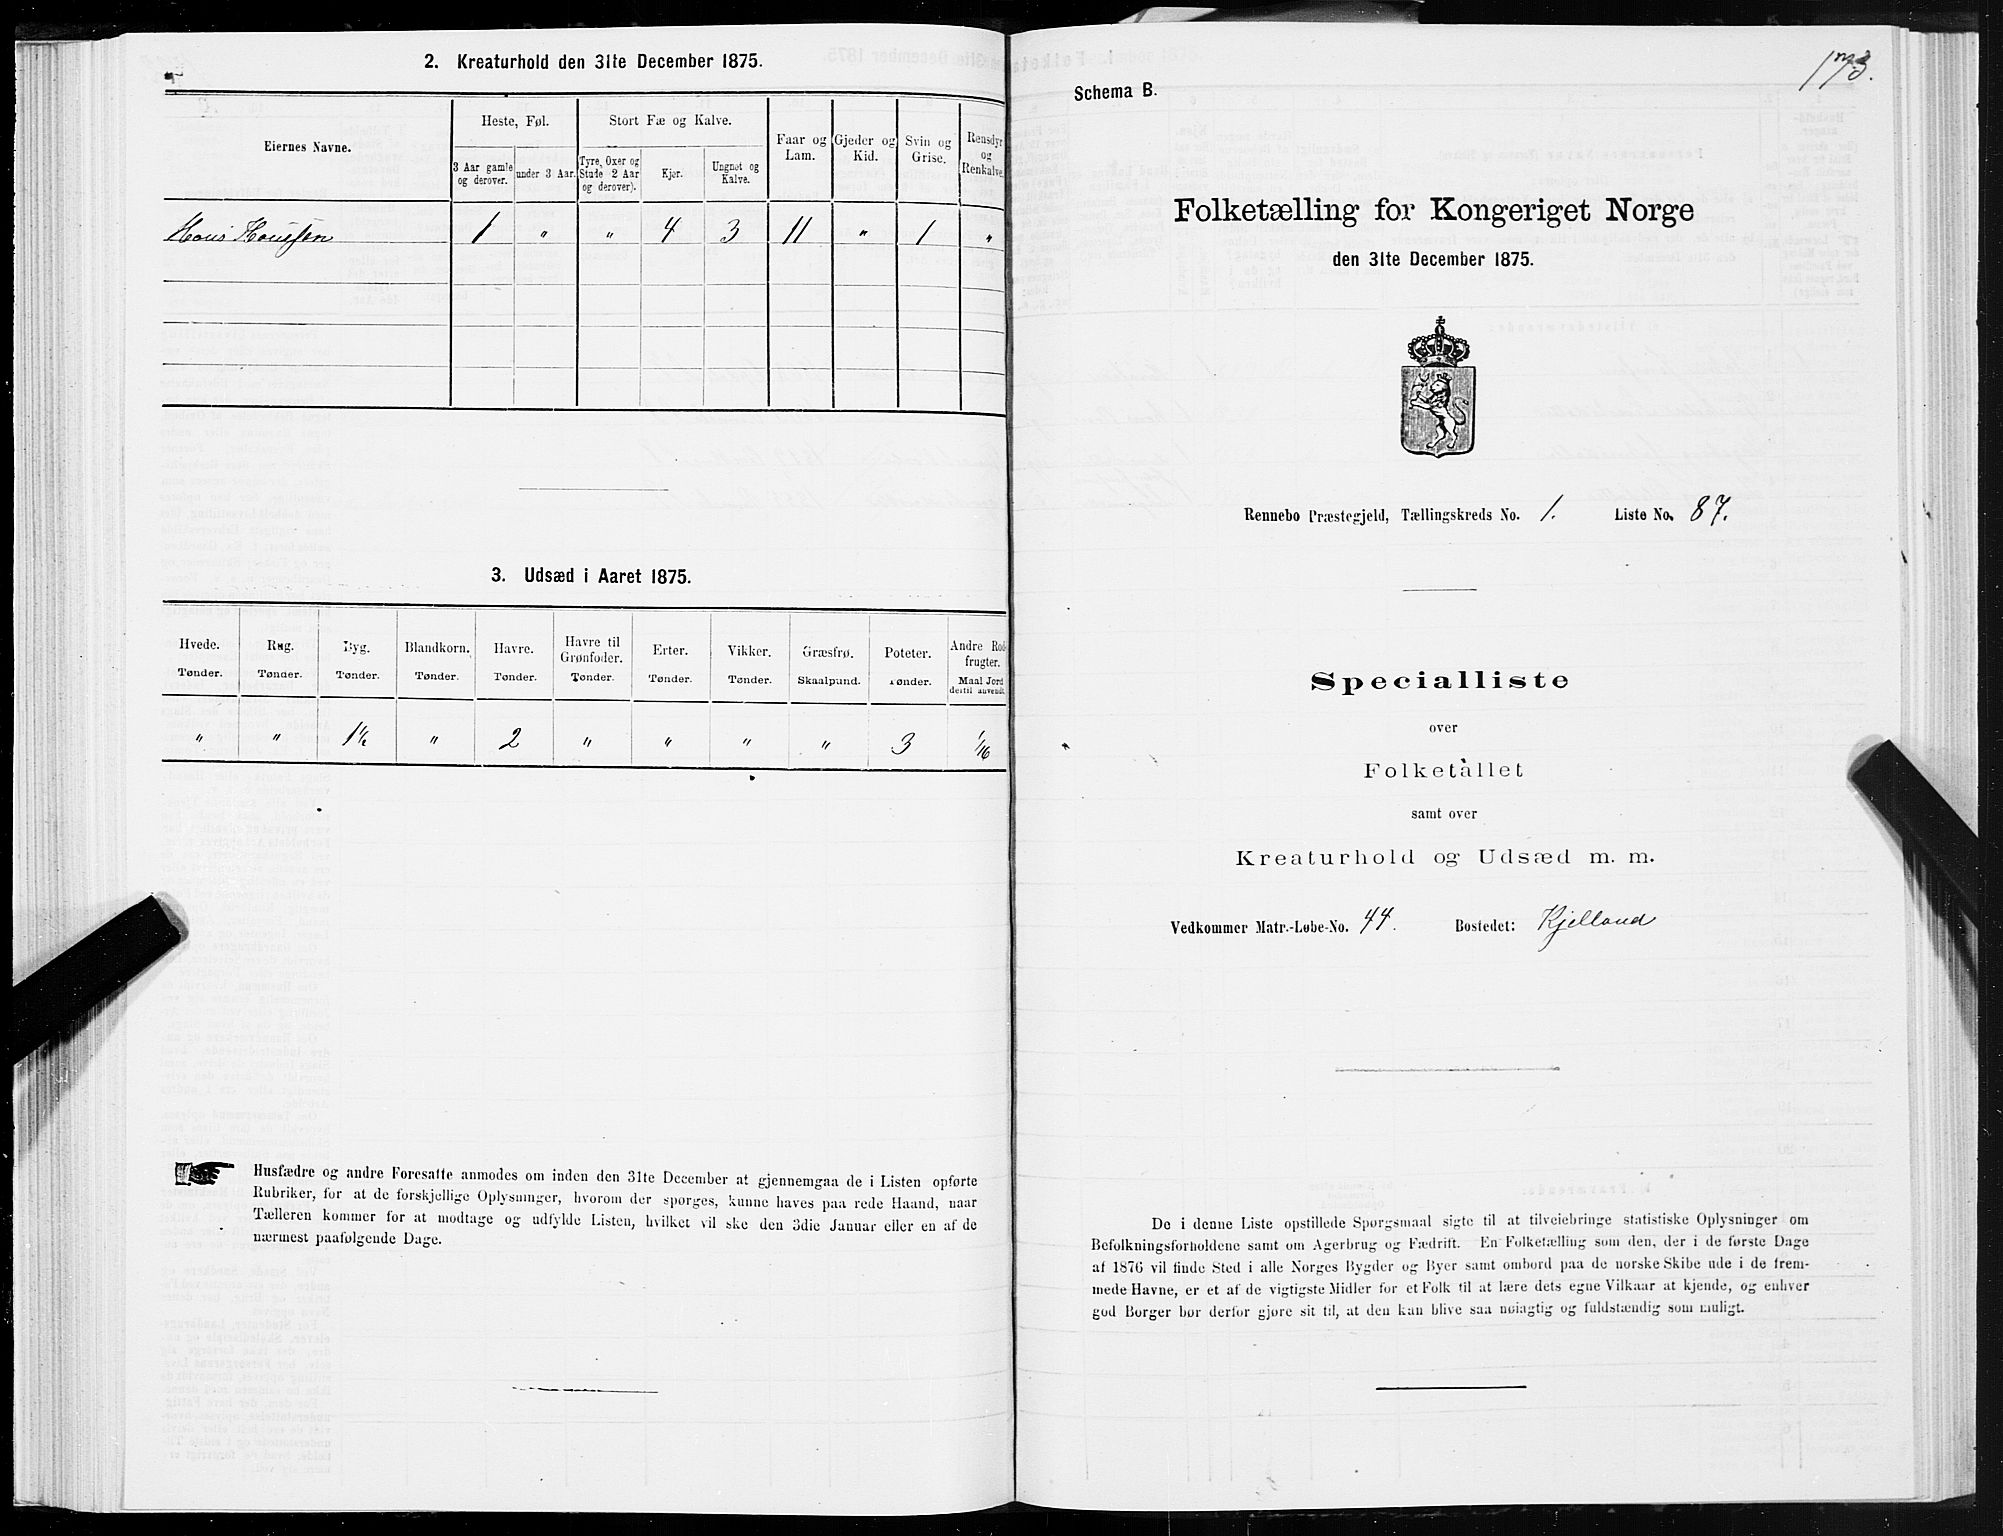 2. Kreaturhold den 31te December 1875.
Eiernes Navne.
Heste, Føl.
Stort Fæ og Kalve.
Faar og Lam.
Gjeder og Kid.
Svin og Grise.
Rensdyr og Renkalve.
3 Aar gamle og derover.
under 3 Aar.
Tyre, Oxer og Stude 2 Aar og derover).
Kjør.
Ungnøt og Kalve.
Hans Hansen 1 " " 4 3 11 " 1 "
3. Udsæd i Aaret 1875.
Hvede. Rug. Byg. Blandkorn. Havre. Havre til Grønfoder. Erter. Vikker. Græsfrø. Poteter. Andre Rodfrugter.
Tønder. Tønder. Tønder. Tønder. Tønder. Tønder. Tønder. Tønder. Skaalpund. Tønder. Maal Jord dertil anvendt.
" " 1½ " 2 " " " " 3 1/16
Husfædre og andre Foresatte anmodes om inden den 31te December at gjennemgaa de i Listen opførte
Rubriker, for at de forskjellige Oplysninger, hvorom der spørges, kunne haves paa rede Haand, naar
Tælleren kommer for at modtage og udfylde Listen, hvilket vil ske den 3die Januar eller en af de
nærmest paafølgende Dage.
173.
Schema B.
Folketælling for Kongeriget Norge
den 31te December 1875.
Rennebo Præstegjeld, Tællingskreds No. 1. Liste No. 87.
Specialliste
over
Folketallet
samt over
Kreaturhold og Udsæd m. m.
Vedkommer Matr.-Løbe-No. 44. Bostedet: Kjelland
De i denne Liste opstillede Spørgsmaal sigte til at tilveiebringe statistiske Oplysninger om
Befolkningsforholdene samt om Agerbrug og Fædrift. En Folketælling som den, der i de første Dage
af 1876 vil finde Sted i alle Norges Bygder og Byer samt ombord paa de norske Skibe ude i de frem-
mede Havne, er et af de vigtigste Midler for et Folk til at lære dets egne Vilkaar at kjende, og enhver
god Borger bør derfor gjøre sit til, at den kan blive saa nøiagtig og fuldstændig som muligt.